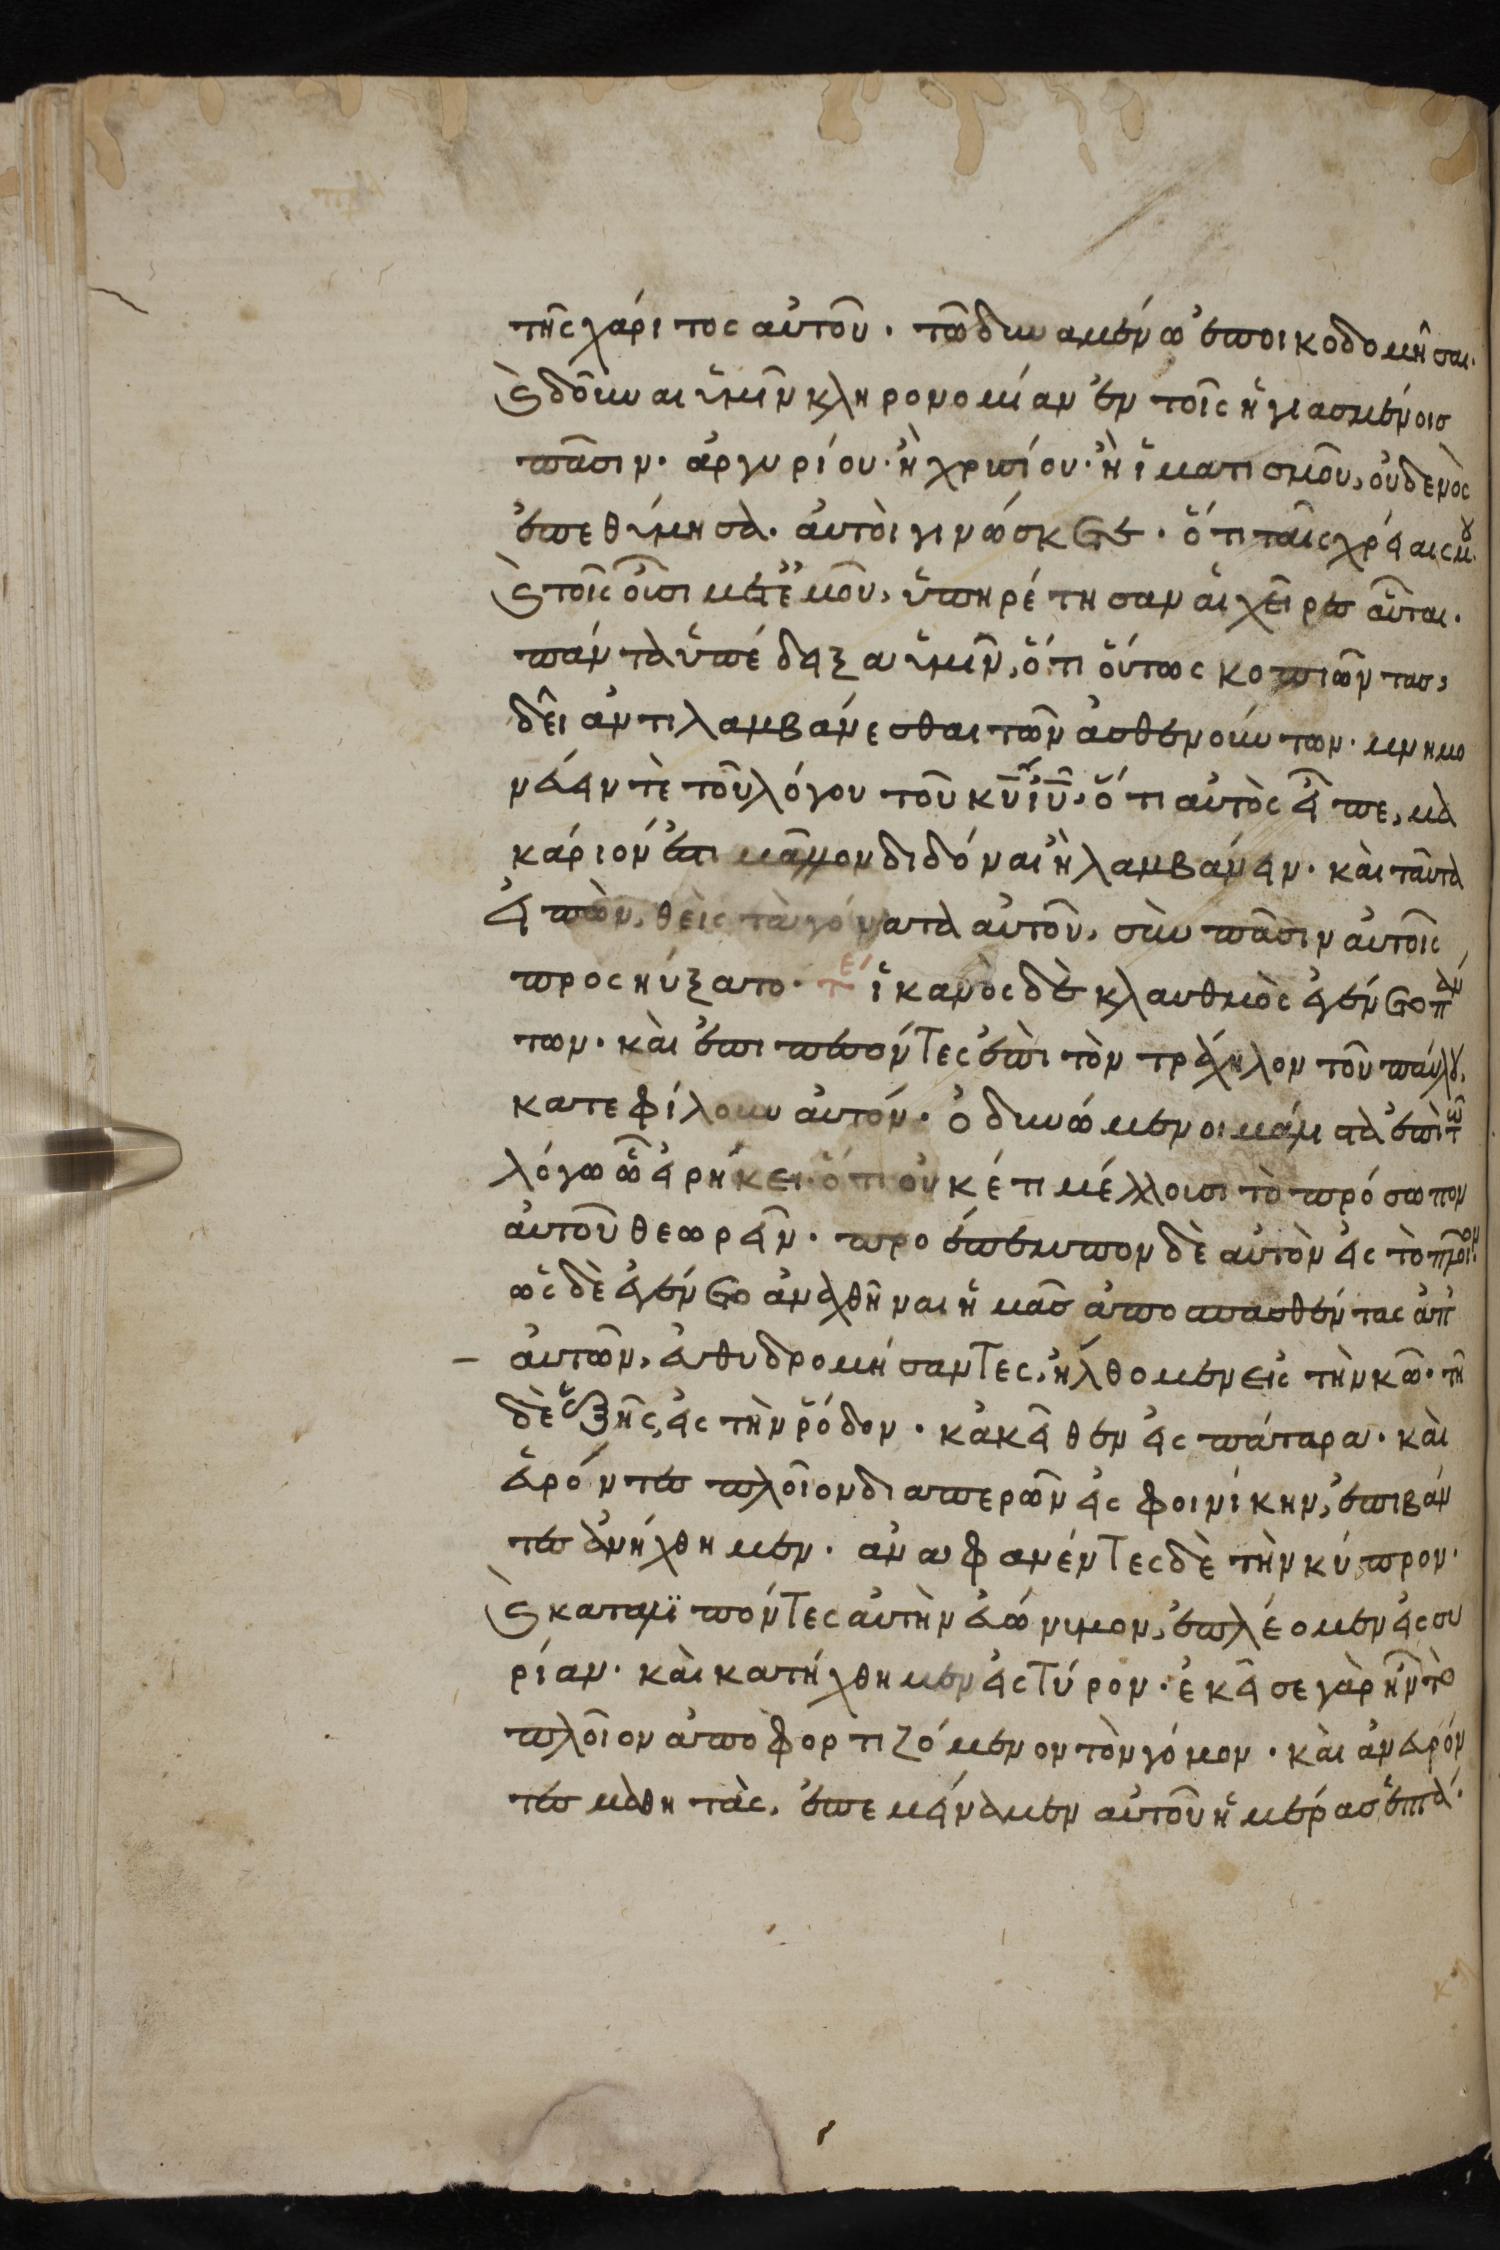 τῆς χάριτος αὐτοῦ· τῶ δυναμένω ἐποικοδομῆσαι·
ϗ δοῦναι ὑμῖν κληρονομίαν ἐν τοῖς ἡγιασμένοις
πᾶσιν· ἀργυρίου· ἢ χρυσίου· ἢ ἱματισμοῦ, οὐδενὸς
ἐπεθύμησα· αὐτοὶ γινώσκετε· ὅτι ταῖς χρείαις μου·
ϗ τοῖς οὖσι μετ' ἐμοῦ, ὑπηρέτησαν αἱ χεῖρες αὗται·
πάντα ὑπέδειξα ὑμῖν, ὅτι οὕτως κοπιῶντας,
δεῖ ἀντιλαμβάνεσθαι τῶν ἀσθενούντων· μνημο
νεύειν τὲ τοῦ λόγου τοῦ κῡ ῑῡ, ὅτι αὐτὸς εἶπε, μα
κάριόν ἐστι μᾶλλον διδόναι ἢ λαμβάνειν· καὶ ταῦτα
εἰπὼν, θεὶς τὰ γόνατα αὐτοῦ, σὺν πᾶσιν αὐτοῖς
προσηύξατο· τε ἱκανὸς δὲ κλαυθμὸς ἐγένετο πάν
των· καὶ ἐπιπεσόντες ἐπὶ τὸν τράχηλον τοῦ παύλου,
κατεφίλουν αὐτόν· ὀδυνώμενοι μάλιστα ἐπὶ τῶ
λόγω ὧ εἰρήκει· ὅτι οὐκέτι μέλλουσι τὸ πρόσωπον
αὐτοῦ θεωρεῖν· προέπεμπον δὲ αὐτὸν εἰς τὸ πλοῖον·
ὡς δὲ ἐγένετο ἀναχθῆναι ἡμᾶς ἀποσπασθέντας ἀπ'
αὐτῶν, εὐθυδρομήσαντες, ἤλθομεν εἰς τὴν κῶ· τῆ
δὲ ἑξῆς, εἰς τὴν ῥόδον· κἀκεῖθεν εἰς πάταρα· καὶ
εὑρόντες πλοῖον διαπερῶν εἰς φοινίκην, ἐπιβάν
τες ἀνήχθημεν· ἀναφανέντες δὲ τὴν κύπρον·
ϗ καταλιπόντες αὐτὴν εὐώνυμον, ἐπλέομεν εἰς συ
ρίαν· καὶ κατήχθημεν εἰς τύρον· ἐκεῖσε γὰρ ἦν τὸ
πλοῖον ἀποφορτιζόμενον τὸν γόμον· καὶ ἀνευρόν
τες μαθητὰς, ἐπεμείναμεν αὐτοῦ ἡμέρας ἑπτά·